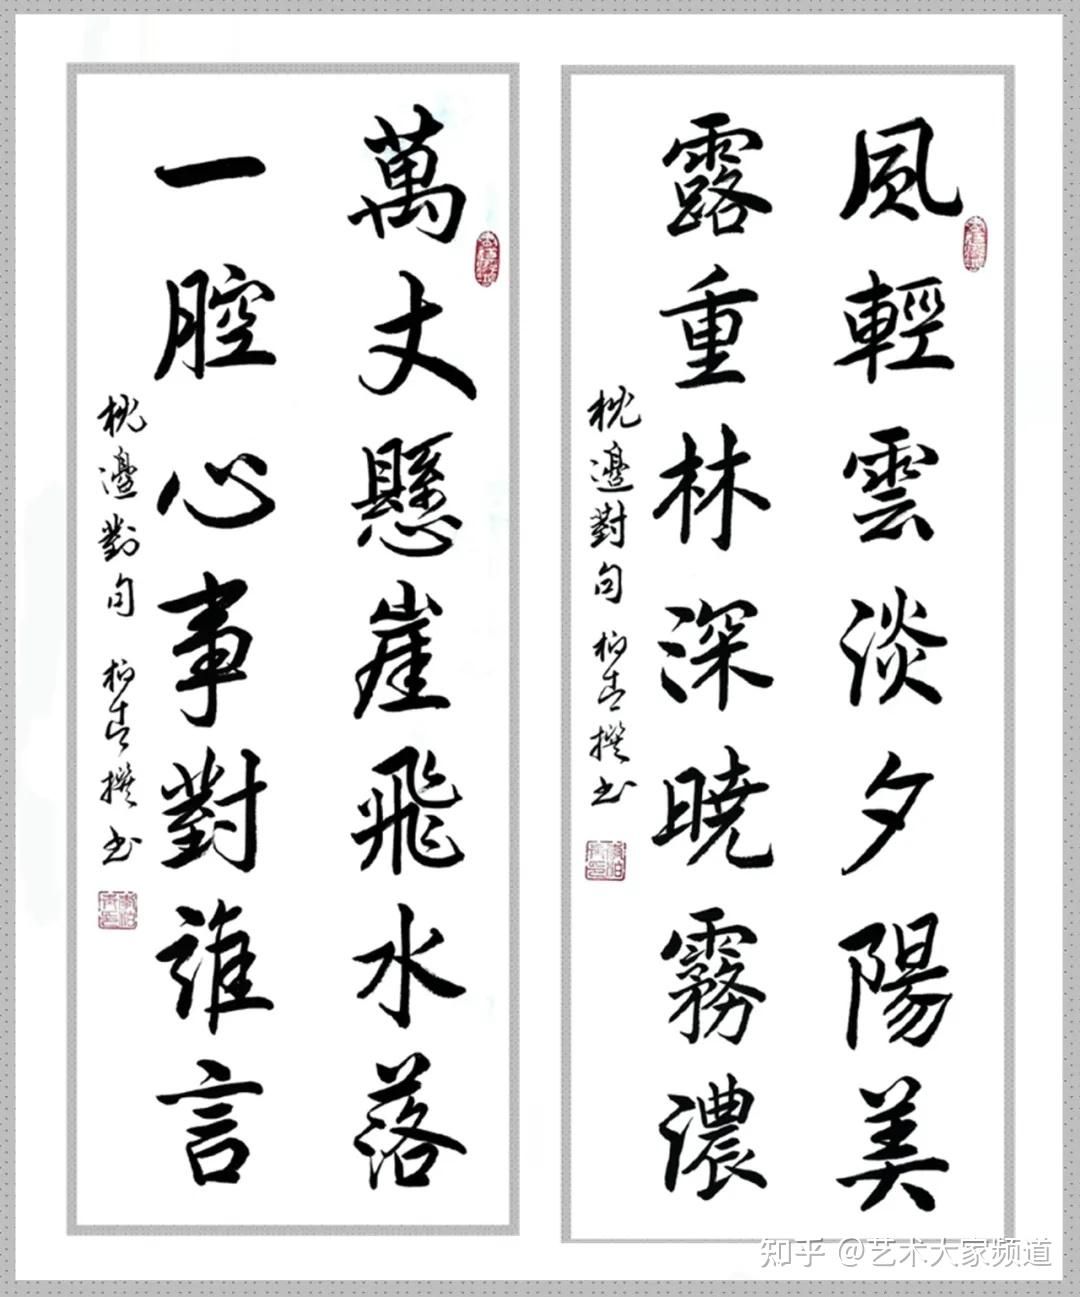 風輕雲淡夕陽美
露重林深曉霧濃
枕邊對句 柏青撰书
萬丈懸崖飛水落
一腔心事對誰言
枕邊對句 柏青撰书
知乎 @艺术大家频道